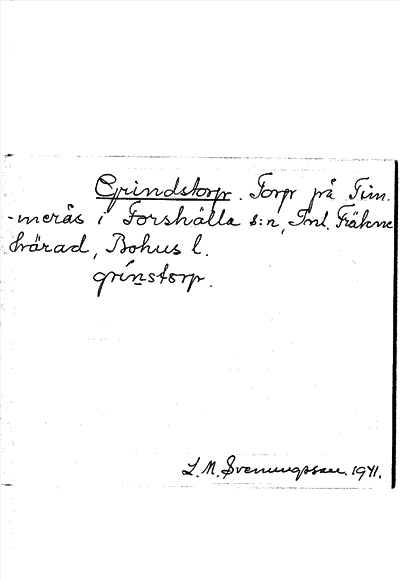 Grindstorp. Torp på Tim-
-merås i Forshälla s:n, Inl. Fräkne
härad, Bohus l.
grinstorp.
S. M. Svenungsson. 1941.